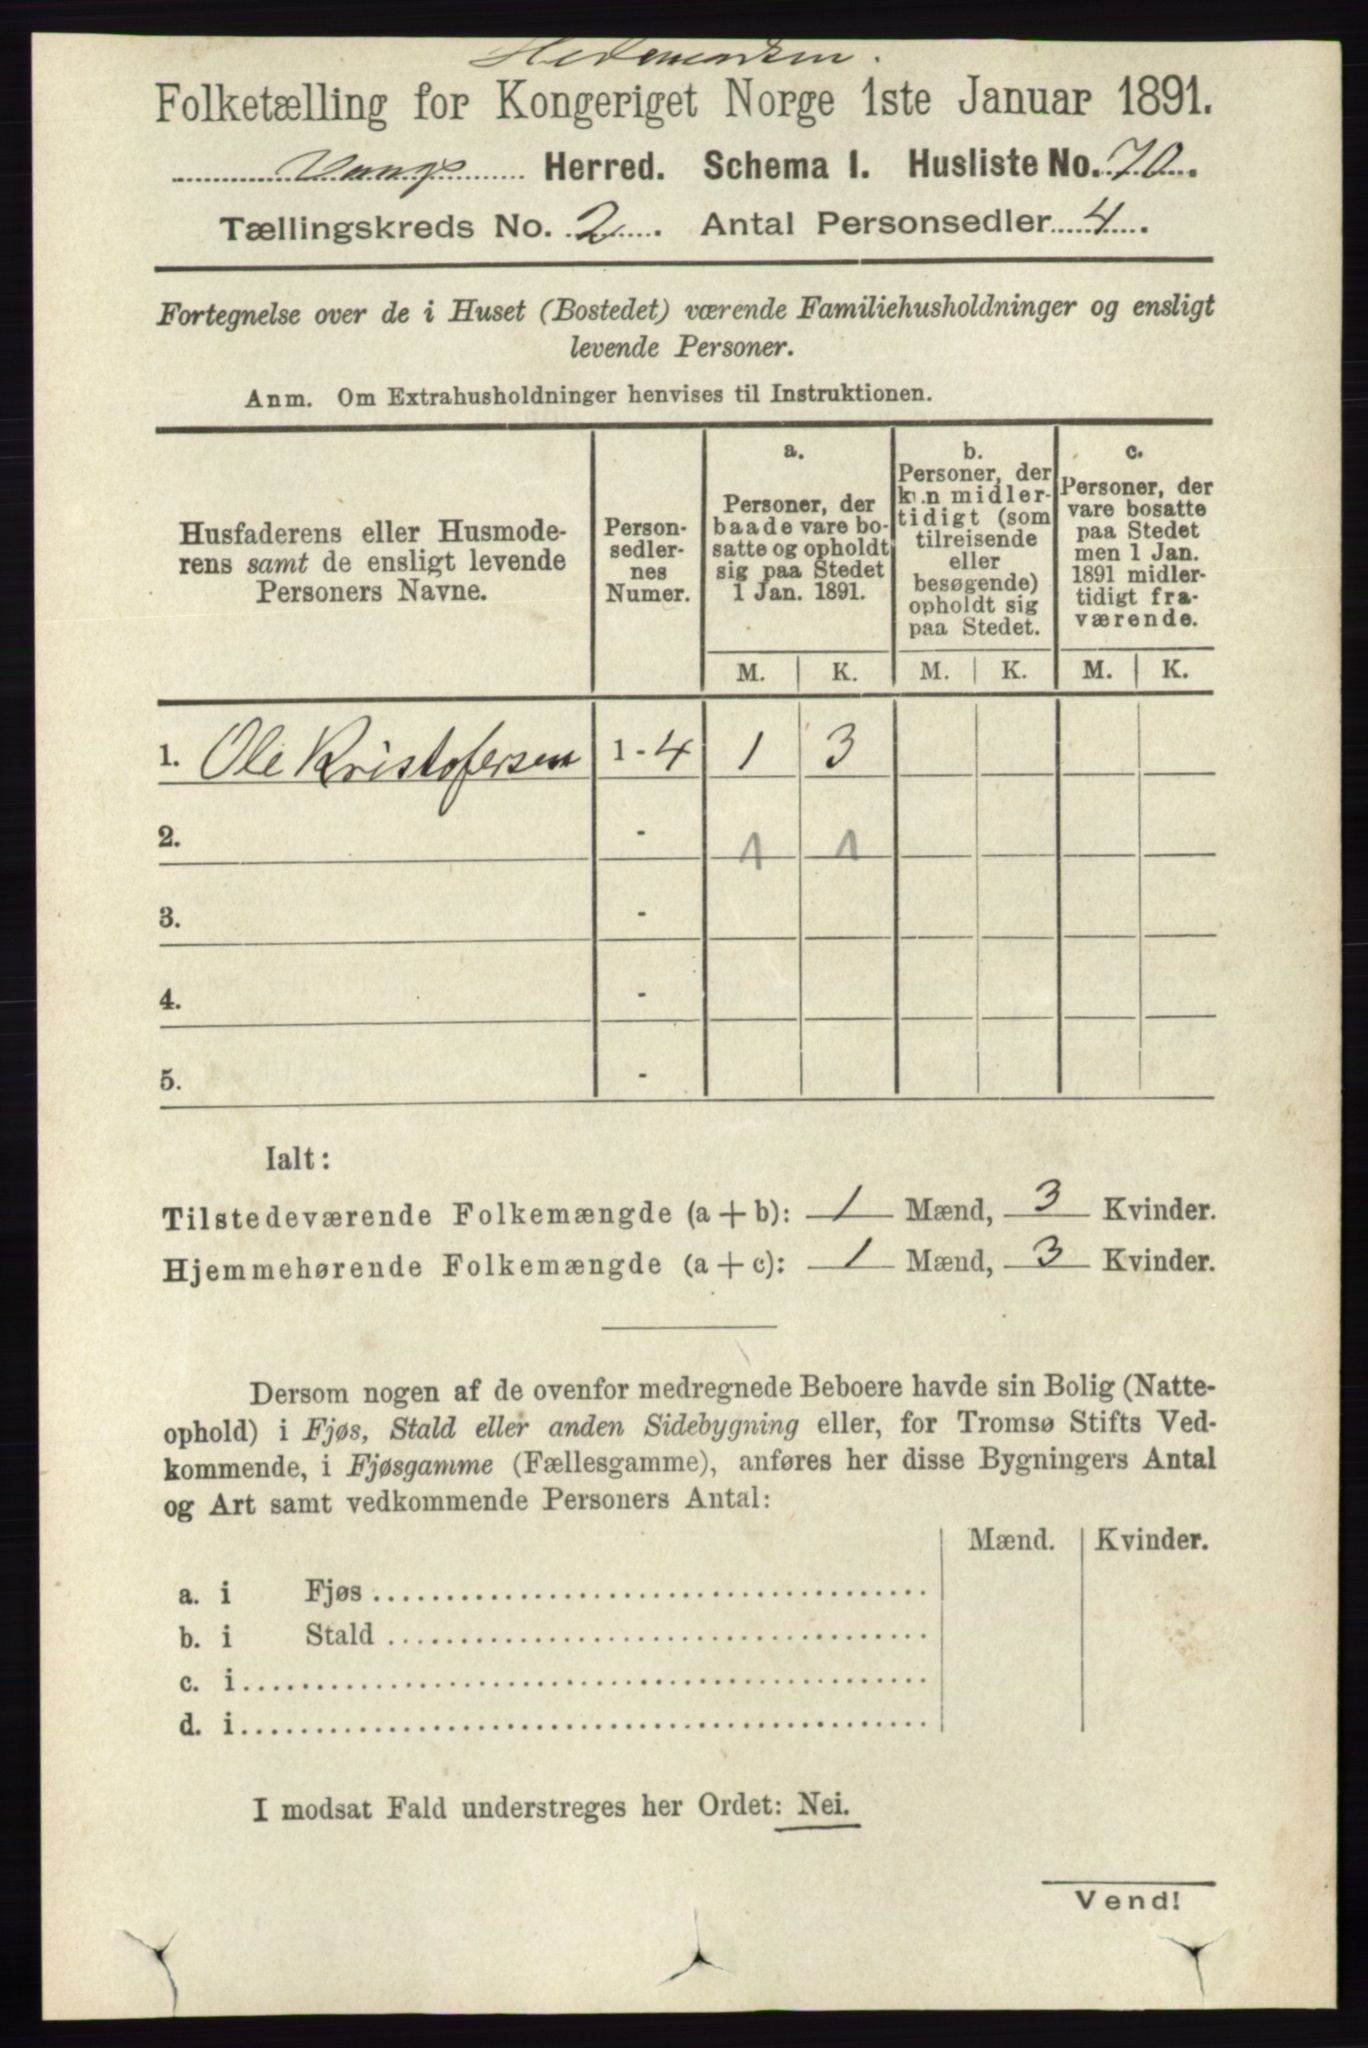 Hedemarken.
Folketælling for Kongeriget Norge 1ste Januar 1891.
Vangs Herred. Schema I. Husliste No. 70.
Tællingskreds No. 2. Antal Personsedler 4.
Fortegnelse over de i Huset (Bostedet) værende Familiehusholdninger og ensligt
levende Personer.
Anm. Om Extrahusholdninger henvises til Instruktionen.
Husfaderens eller Husmode-
rens samt de ensligt levende
Personers Navne.
Person-
sedler-
nes
Numer.
a.
Personer, der
baade vare bo-
satte og opholdt
sig paa Stedet
1 Jan. 1891.
b.
Personer, der
kun midler-
tidigt (som
tilreisende
eller
besøgende)
opholdt sig
paa Stedet.
c.
Personer, der
vare bosatte
paa Stedet
men 1 Jan.
1891 midler-
tidigt fra-
værende.
M. K. M. K. M. K.
1. Ole Kristofersen 1 - 4 1 3
2. - 1 1
3. -
4. -
5. -
Ialt:
Tilstedeværende Folkemængde (a + b): 1 Mænd, 3 Kvinder.
Hjemmehørende Folkemængde (a + c): 1 Mænd, 3 Kvinder.
Dersom nogen af de ovenfor medregnede Beboere havde sin Bolig (Natte-
ophold) i Fjøs, Stald eller anden Sidebygning eller, for Tromsø Stifts Ved-
kommende, i Fjøsgamme (Fællesgamme), anføres her disse Bygningers Antal
og Art samt vedkommende Personers Antal:
Mænd. Kvinder.
a. i Fjøs
b. i Stald
c. i
d. i
I modsat Fald understreges her Ordet: Nei.
Vend!